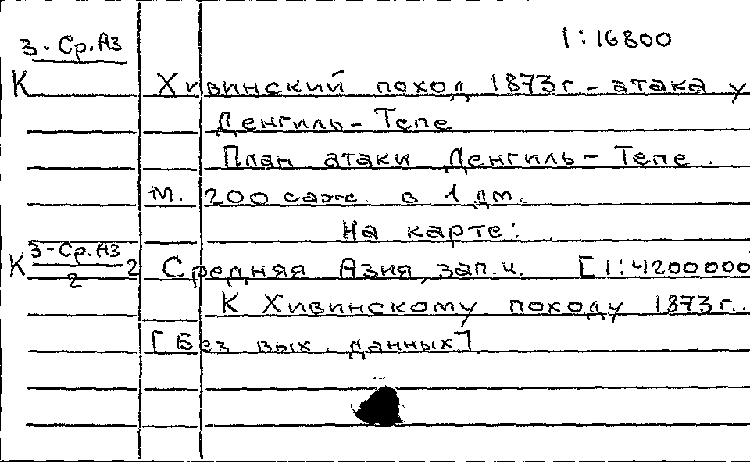 3-Ср.Аз 1:16800
К Хивинский поход 1873г-атака у
Денгиль-Тепе
План атаки Денгиль-Тепе.
М. 200 саж. в 1 дм.
На карте:
К 3-Ср.Аз/2 2 Средняя Азия, зап.ч. [1:4200000
К Хивинскому походу 1873г.
[Без вых. данных]